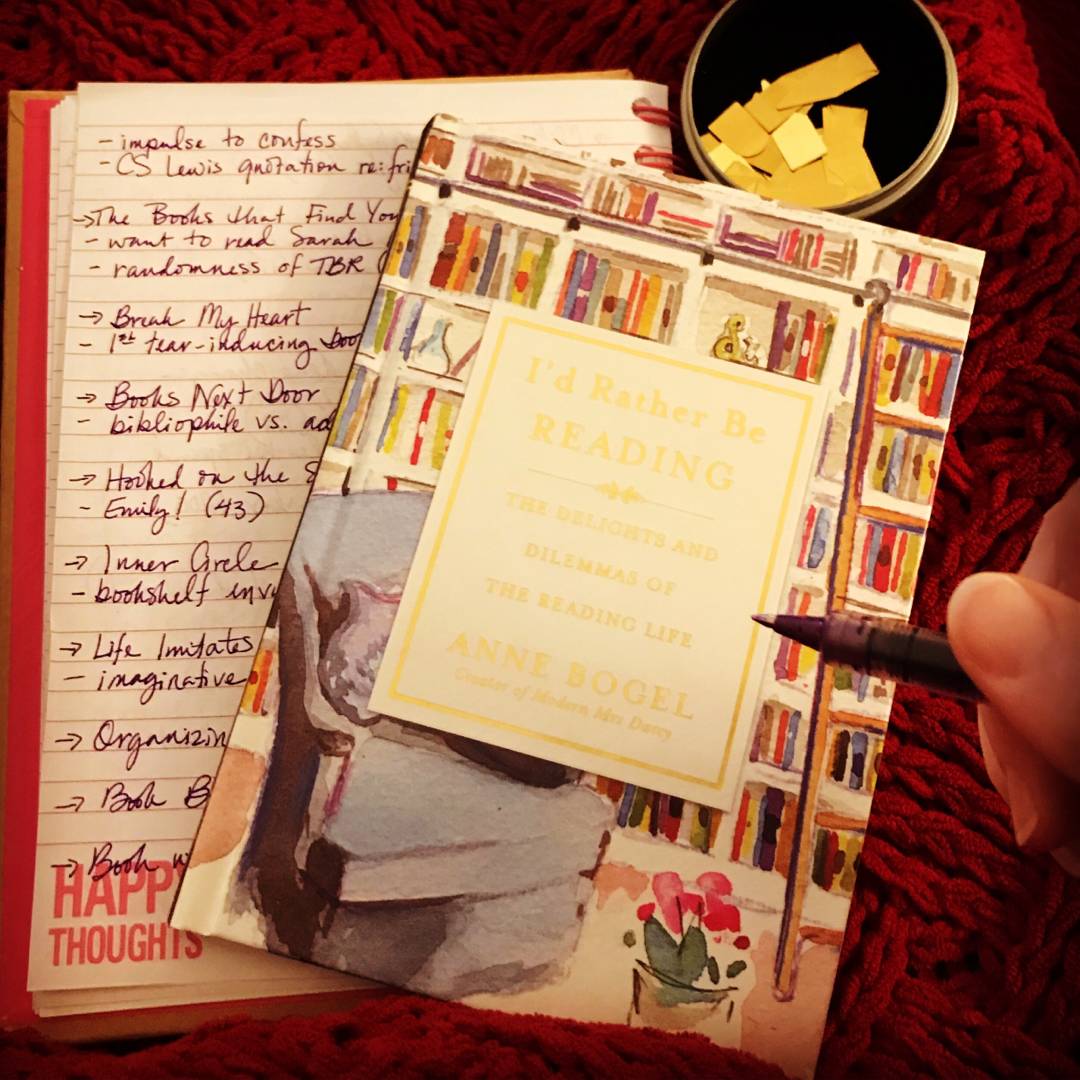 - impulse to confess
- CS Lewis quotation re: fri
→ The Books that Find You
- want to read Sarah
- randomness of TBR
→ Break My Heart
- 1st tear-inducing boo
→ Books Next Door
- bibliophile vs. ad
→ Hooked on the S
- Emily! (43)
→ Inner Circle
- bookshelf inv
→ Life Imitates
- imaginative
→ Organizin
→ Book B
→ Book w
HAPPY
THOUGHTS
I'd Rather Be
READING
THE DELIGHTS AND
DILEMMAS OF
THE READING LIFE
ANNE BOGEL
Creator of Modern Mrs Darcy